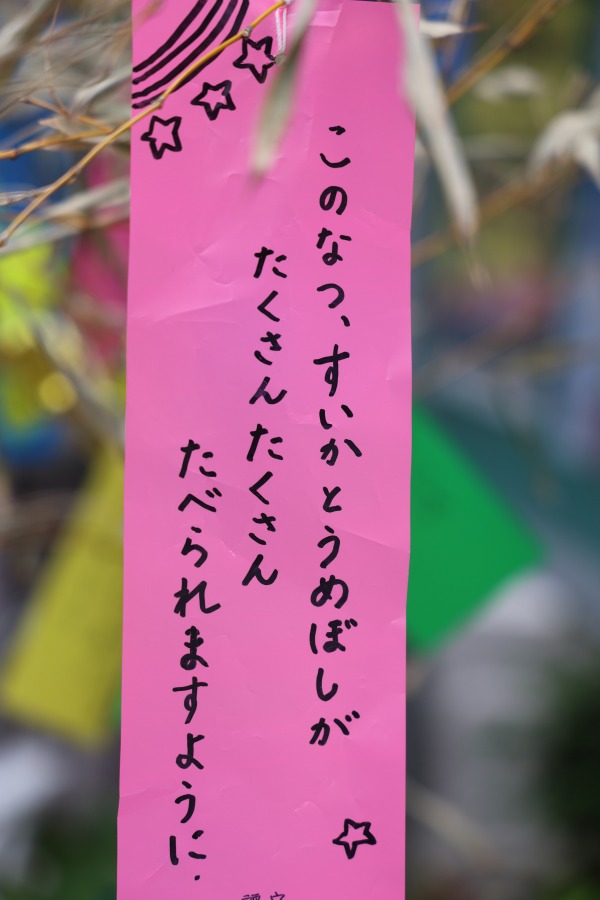 このなつ、すいかとうめぼしが
たくさんたくさん
たべられますように.